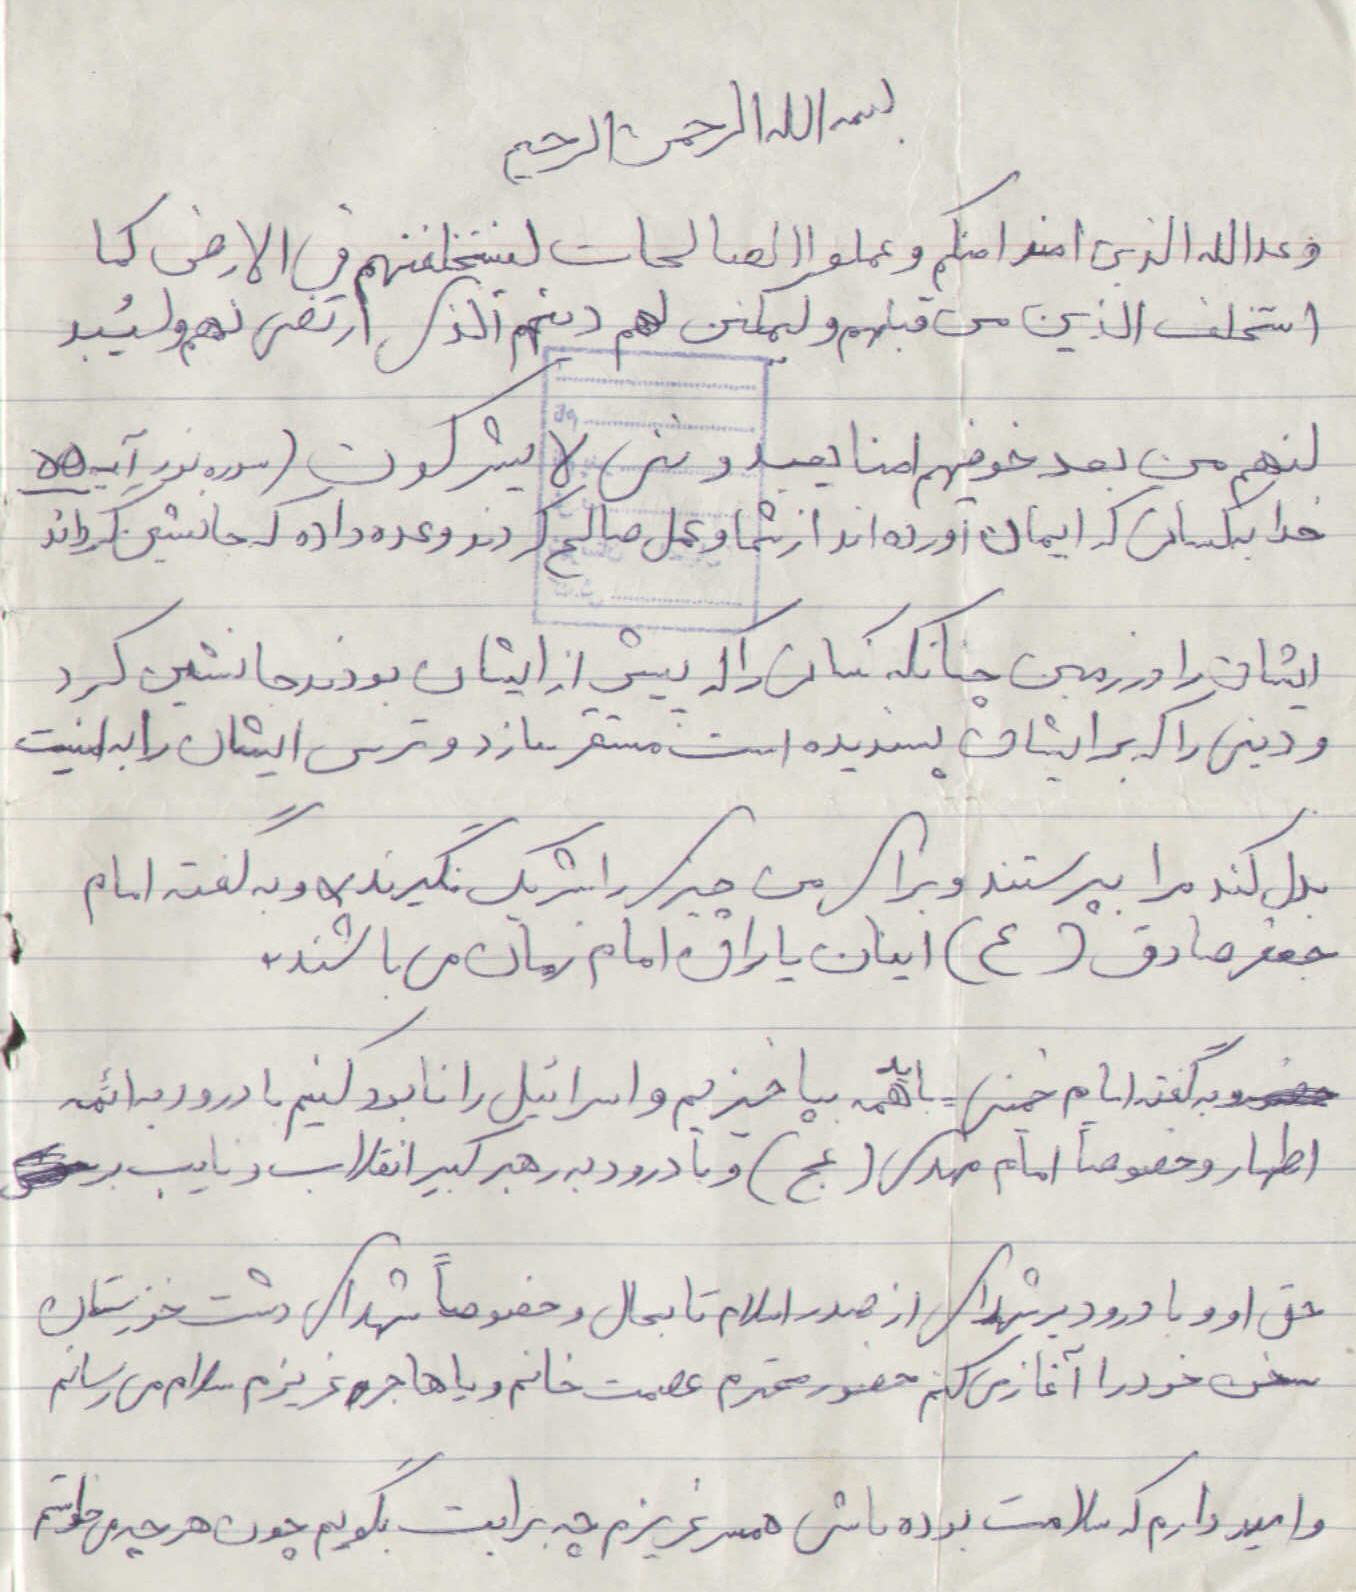 بسمه الله الرحمن الرحیم
وعدالله الذین امنو امنکم و عملوا الصالحات لیستخلفنهم فی الارض کما
استخلف الذین من قبلهم و لیمکنن لهم دینهم آلذی ارتضی لهم ولیُبد
لنهم من بعد خوفهم امنا یعبدو ننی لا یشرکون (سوره نور آیه ۵۵
خدا بکسانی که ایمان آورده اند از شما و عمل صالح کردند وعده داده که جانشین گرداند
ایشان را در زمین چنانکه کسانی را که پیش از ایشان بودند جانشین کرد
و دینی را که بر ایشان پسندیده است مستقر سازد و ترس ایشان را به امنیت
بدل کند مرا بپرستند و برای من چیزی را شریک نگیرند و به گفته امام
جعفر صادق (ع) اینان یاران امام زمان می باشند
و به گفته امام خمینی = باید همه بپا خیزیم و اسرائیل را نابود کنیم با درود به ائمه
اطهار و خصوصاً امام مهدی (عج) و با درود به رهبر کبیر انقلاب و نایب بر
حق او و با درود بر شهدای از صدر اسلام تا بحال و خصوصاً شهدای دشت خوزستان
سخن خود را آغاز می کنم حضور محترم عصمت خانم و یا هاجره عزیزم سلام می رسانم
و امید دارم که سلامت بوده باشی همسر عزیزم چه برایت بگویم چون هر چه می خواستم